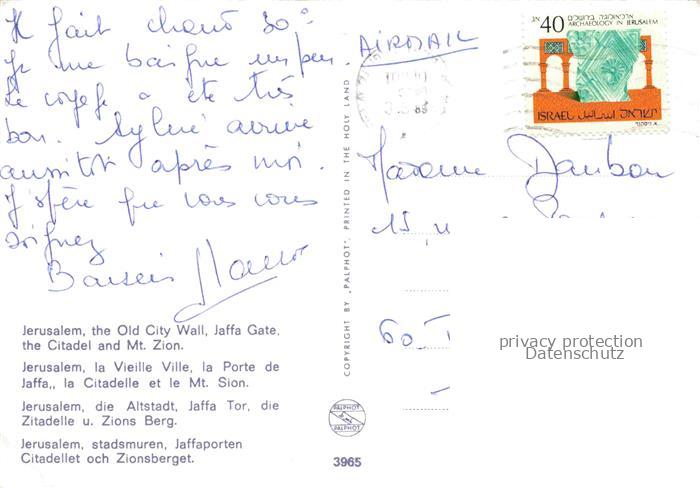 Il fait chaud 30°
je me baigne un peu.
Le voyage a été très
bon. Sylvie arrive
aussitôt après moi.
J'espère que vous vous
soignez
Baisers
Jerusalem, the Old City Wall, Jaffa Gate,
the Citadel and Mt. Zion.
Jerusalem, la Vieille Ville, la Porte de
Jaffa,, la Citadelle et le Mt. Sion.
Jerusalem, die Altstadt, Jaffa Tor, die
Zitadelle u. Zions Berg.
Jerusalem, stadsmuren, Jaffaporten
Citadellet och Zionsberget.
COPYRIGHT BY „PALPHOT", PRINTED IN THE HOLY LAND
PALPHOT
PALPHOT
3965
AIRMAIL
אג 40
ארכאולוגיה בירושלים
ARCHAEOLOGY IN JERUSALEM
ISRAEL اسرائيل ישראל
Madame
15,
60
privacy protection
Datenschutz